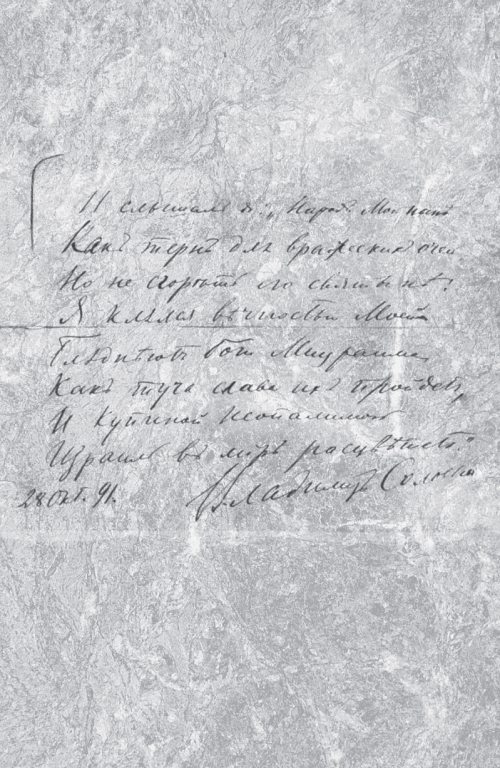 И слышалъ я: „Народъ Мой нынѣ
Какъ тернъ для вражескихъ очей
Но не сгорѣть его святынѣ:
Я клялся вѣчностью Моей
Блѣднѣютъ боги Мицраима,
Какъ туча слава ихъ пройдетъ,
И Купиной Неопалимой
Израиль въ мірѣ расцвѣтетъ.“
28 Окт. 91. Владиміръ Соловьевъ